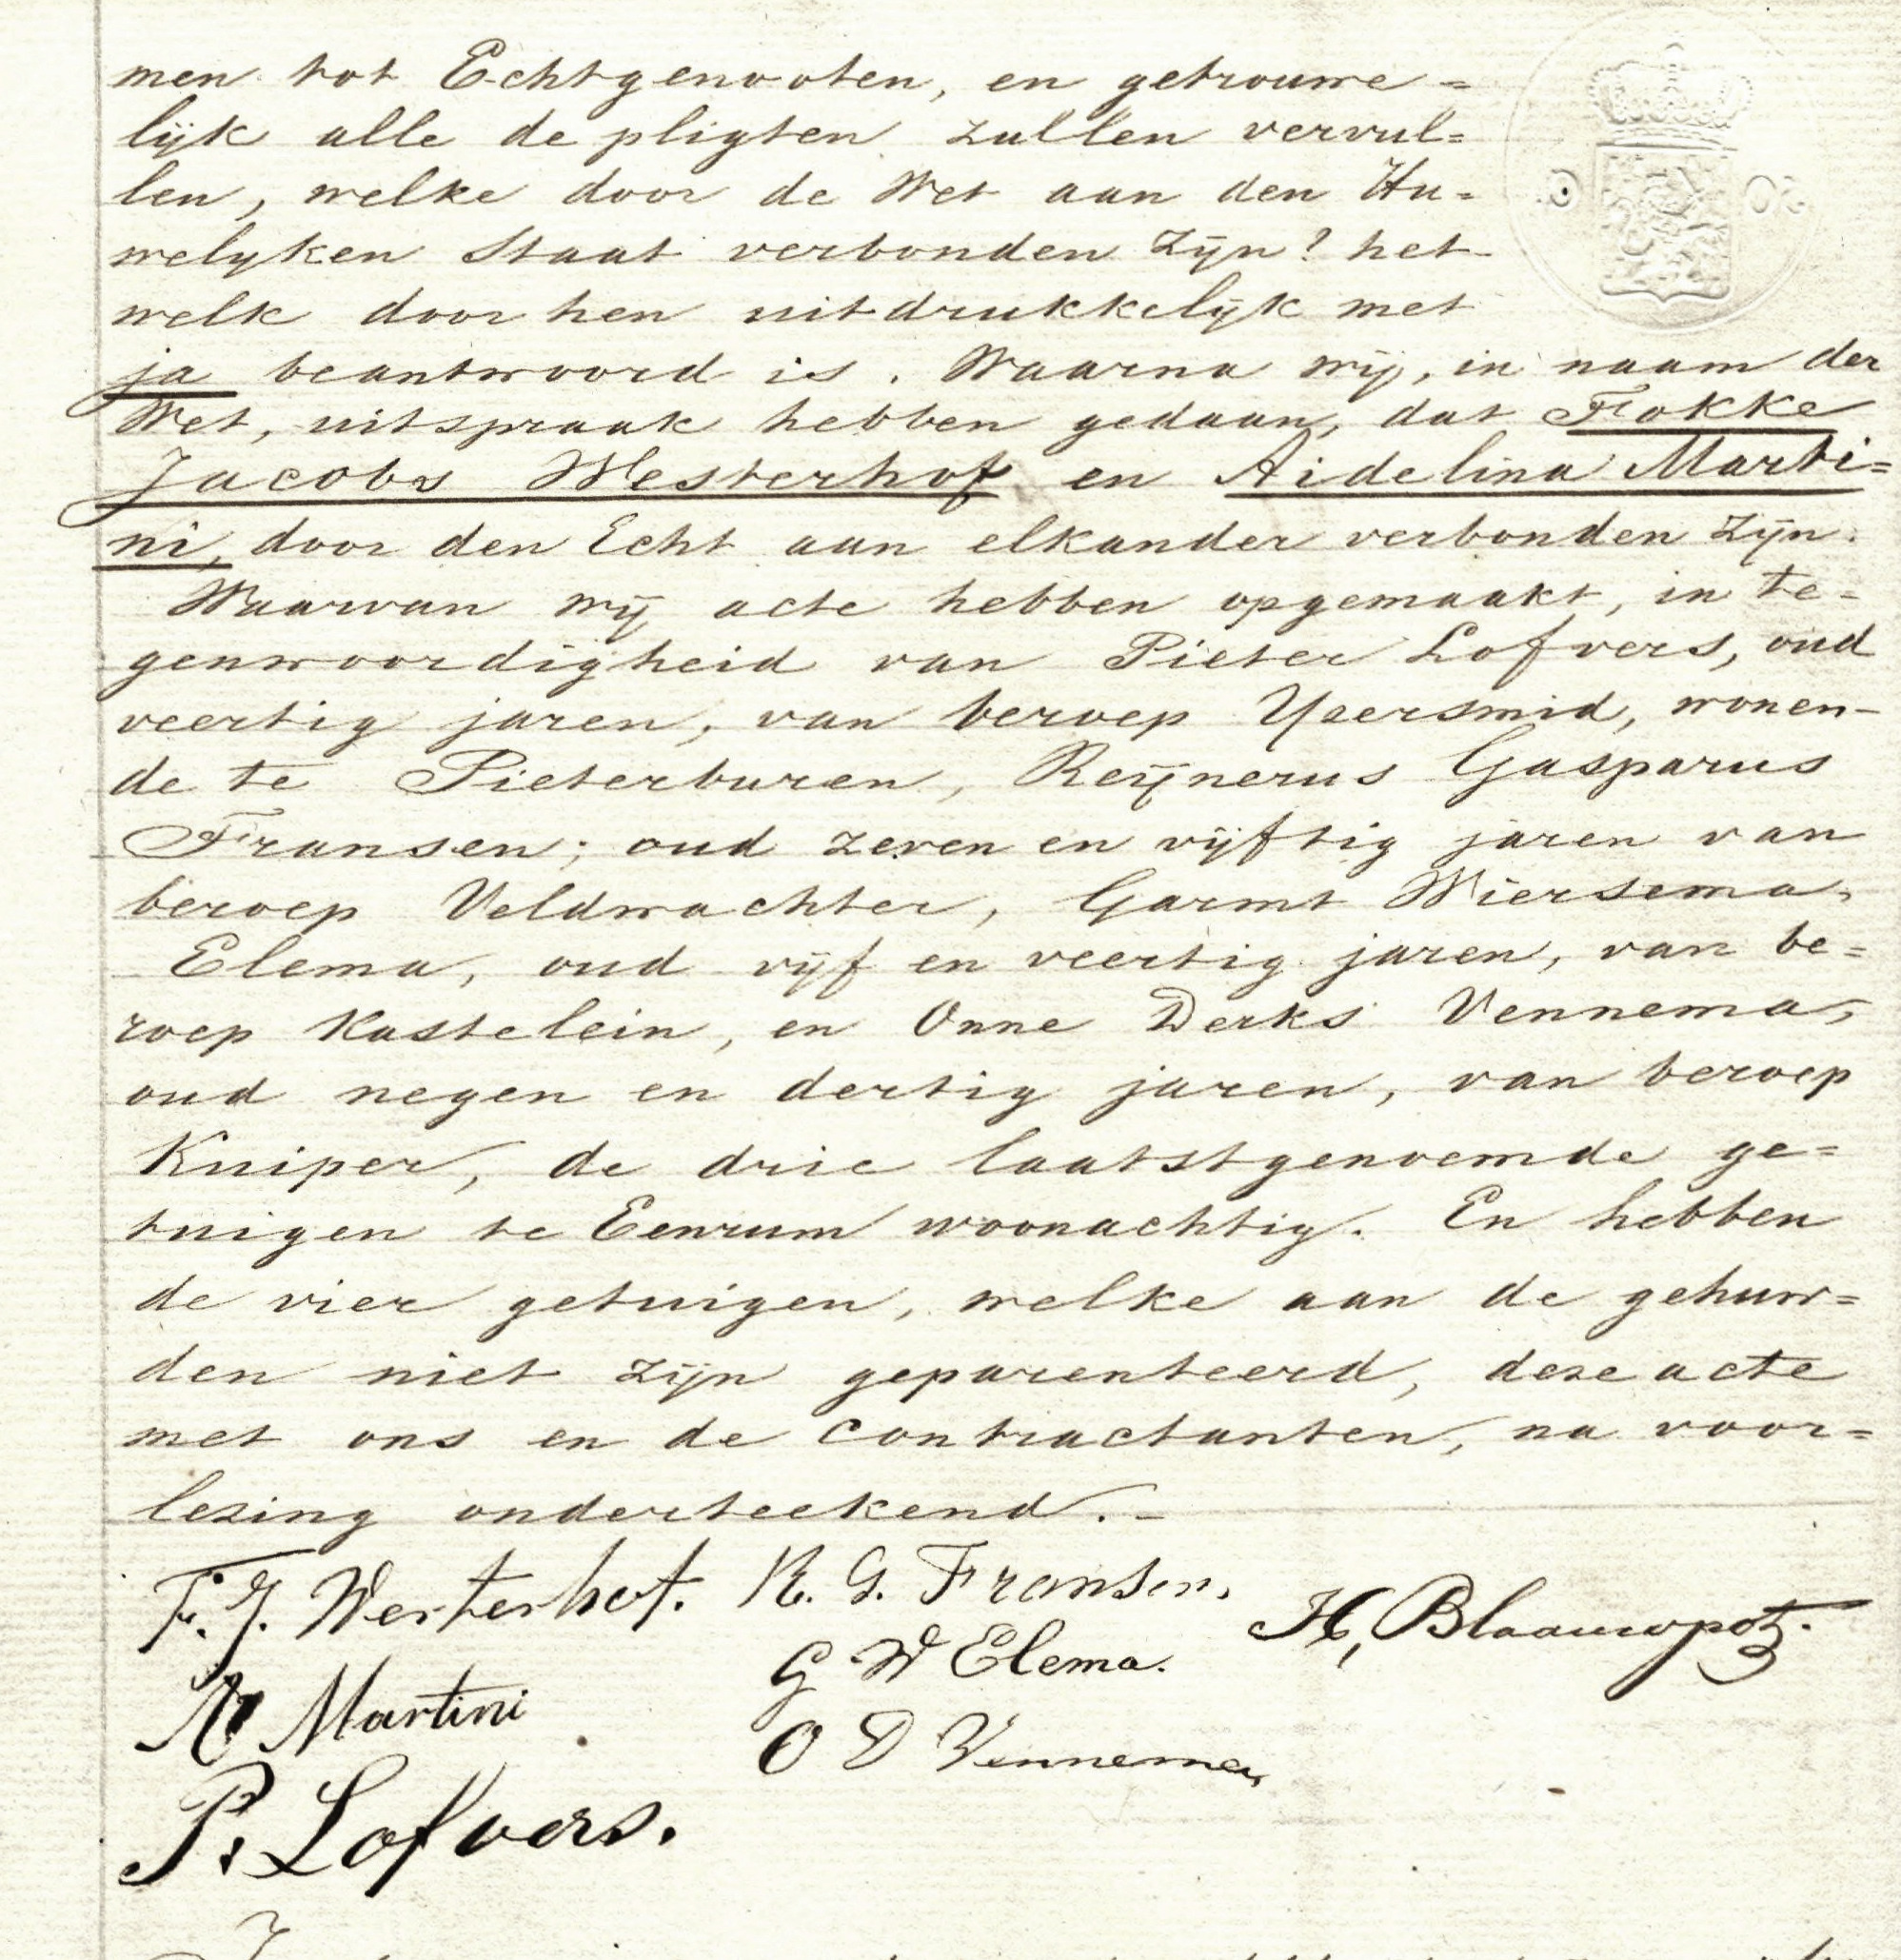 men tot Echtgenooten, en getrouwe=
lijk alle de pligten zullen vervul=
len, welke door de Wet aan den Hu=
welyken Staat verbonden zyn? het
welk door hen uitdrukkelijk met
ja beantwoord is. Waarna wij, in naam der
Wet, uitspraak hebben gedaan, dat Fokke
Jacobs Westerhof en Aidelina Marti=
ni, door den Echt aan elkander verbonden zijn.
Waarvan wij acte hebben opgemaakt, in te=
genwoordigheid van Pieter Lofvers, oud
veertig jaren, van beroep Yzersmid, wonen-
de te Pieterburen, Reijnerus Gasparus
Fransen; oud zeven en vijftig jaren van
beroep Veldwachter, Garmt Wiersema
Elema, oud vijf en veertig jaren, van be=
roep Kastelein, en Onne Derks Vennema,
oud negen en dertig jaren, van beroep
Kuiper, de drie laatstgenoemde ge=
tuigen te Eenrum woonachtig. En hebben
de vier getuigen, welke aan de gehuw=
den niet zijn geparenteerd, deze acte
met ons en de contractanten, na voor=
lezing onderteekend.-
F. J. Westerhof. R. G. Fransen. H, Blaauwpot.
G W Elema.
Martini
O D Vennema
P. Lofvers.